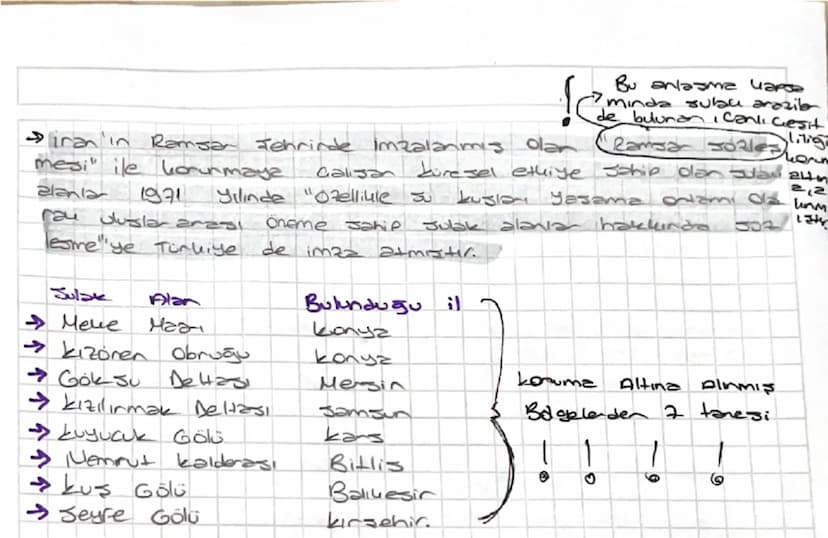 Bu anlaşma kapsa
mında sulak arazile
de bulunan, canlı çeşit
liliği
korun
altın
a alı
nm
ıştır.
→ İran'ın Ramsar şehrinde imzalanmış olan "Ramsar sözleş
mesi" ile korunmaya çalışan küresel etkiye sahip olan sulak
alanlar 1971 yılında "özellikle su kuşları yaşama ortamı ola
rak uluslararası öneme sahip sulak alanlar hakkında söz
leşme"ye Türkiye de imza atmıştır.
Sulak Alan Bulunduğu il
→ Meke Mazı Konya
→ Kızören Obruğu Konya
→ Göksu Deltası Mersin
→ Kızılırmak Deltası Samsun
→ Kuyucuk Gölü Kars
→ Nemrut kalderası Bitlis
→ Kuş Gölü Balıkesir
→ Seyfe Gölü Kırşehir.
Koruma Altına Alınmış
Bölgelerden 7 tanesi
! ! ! !